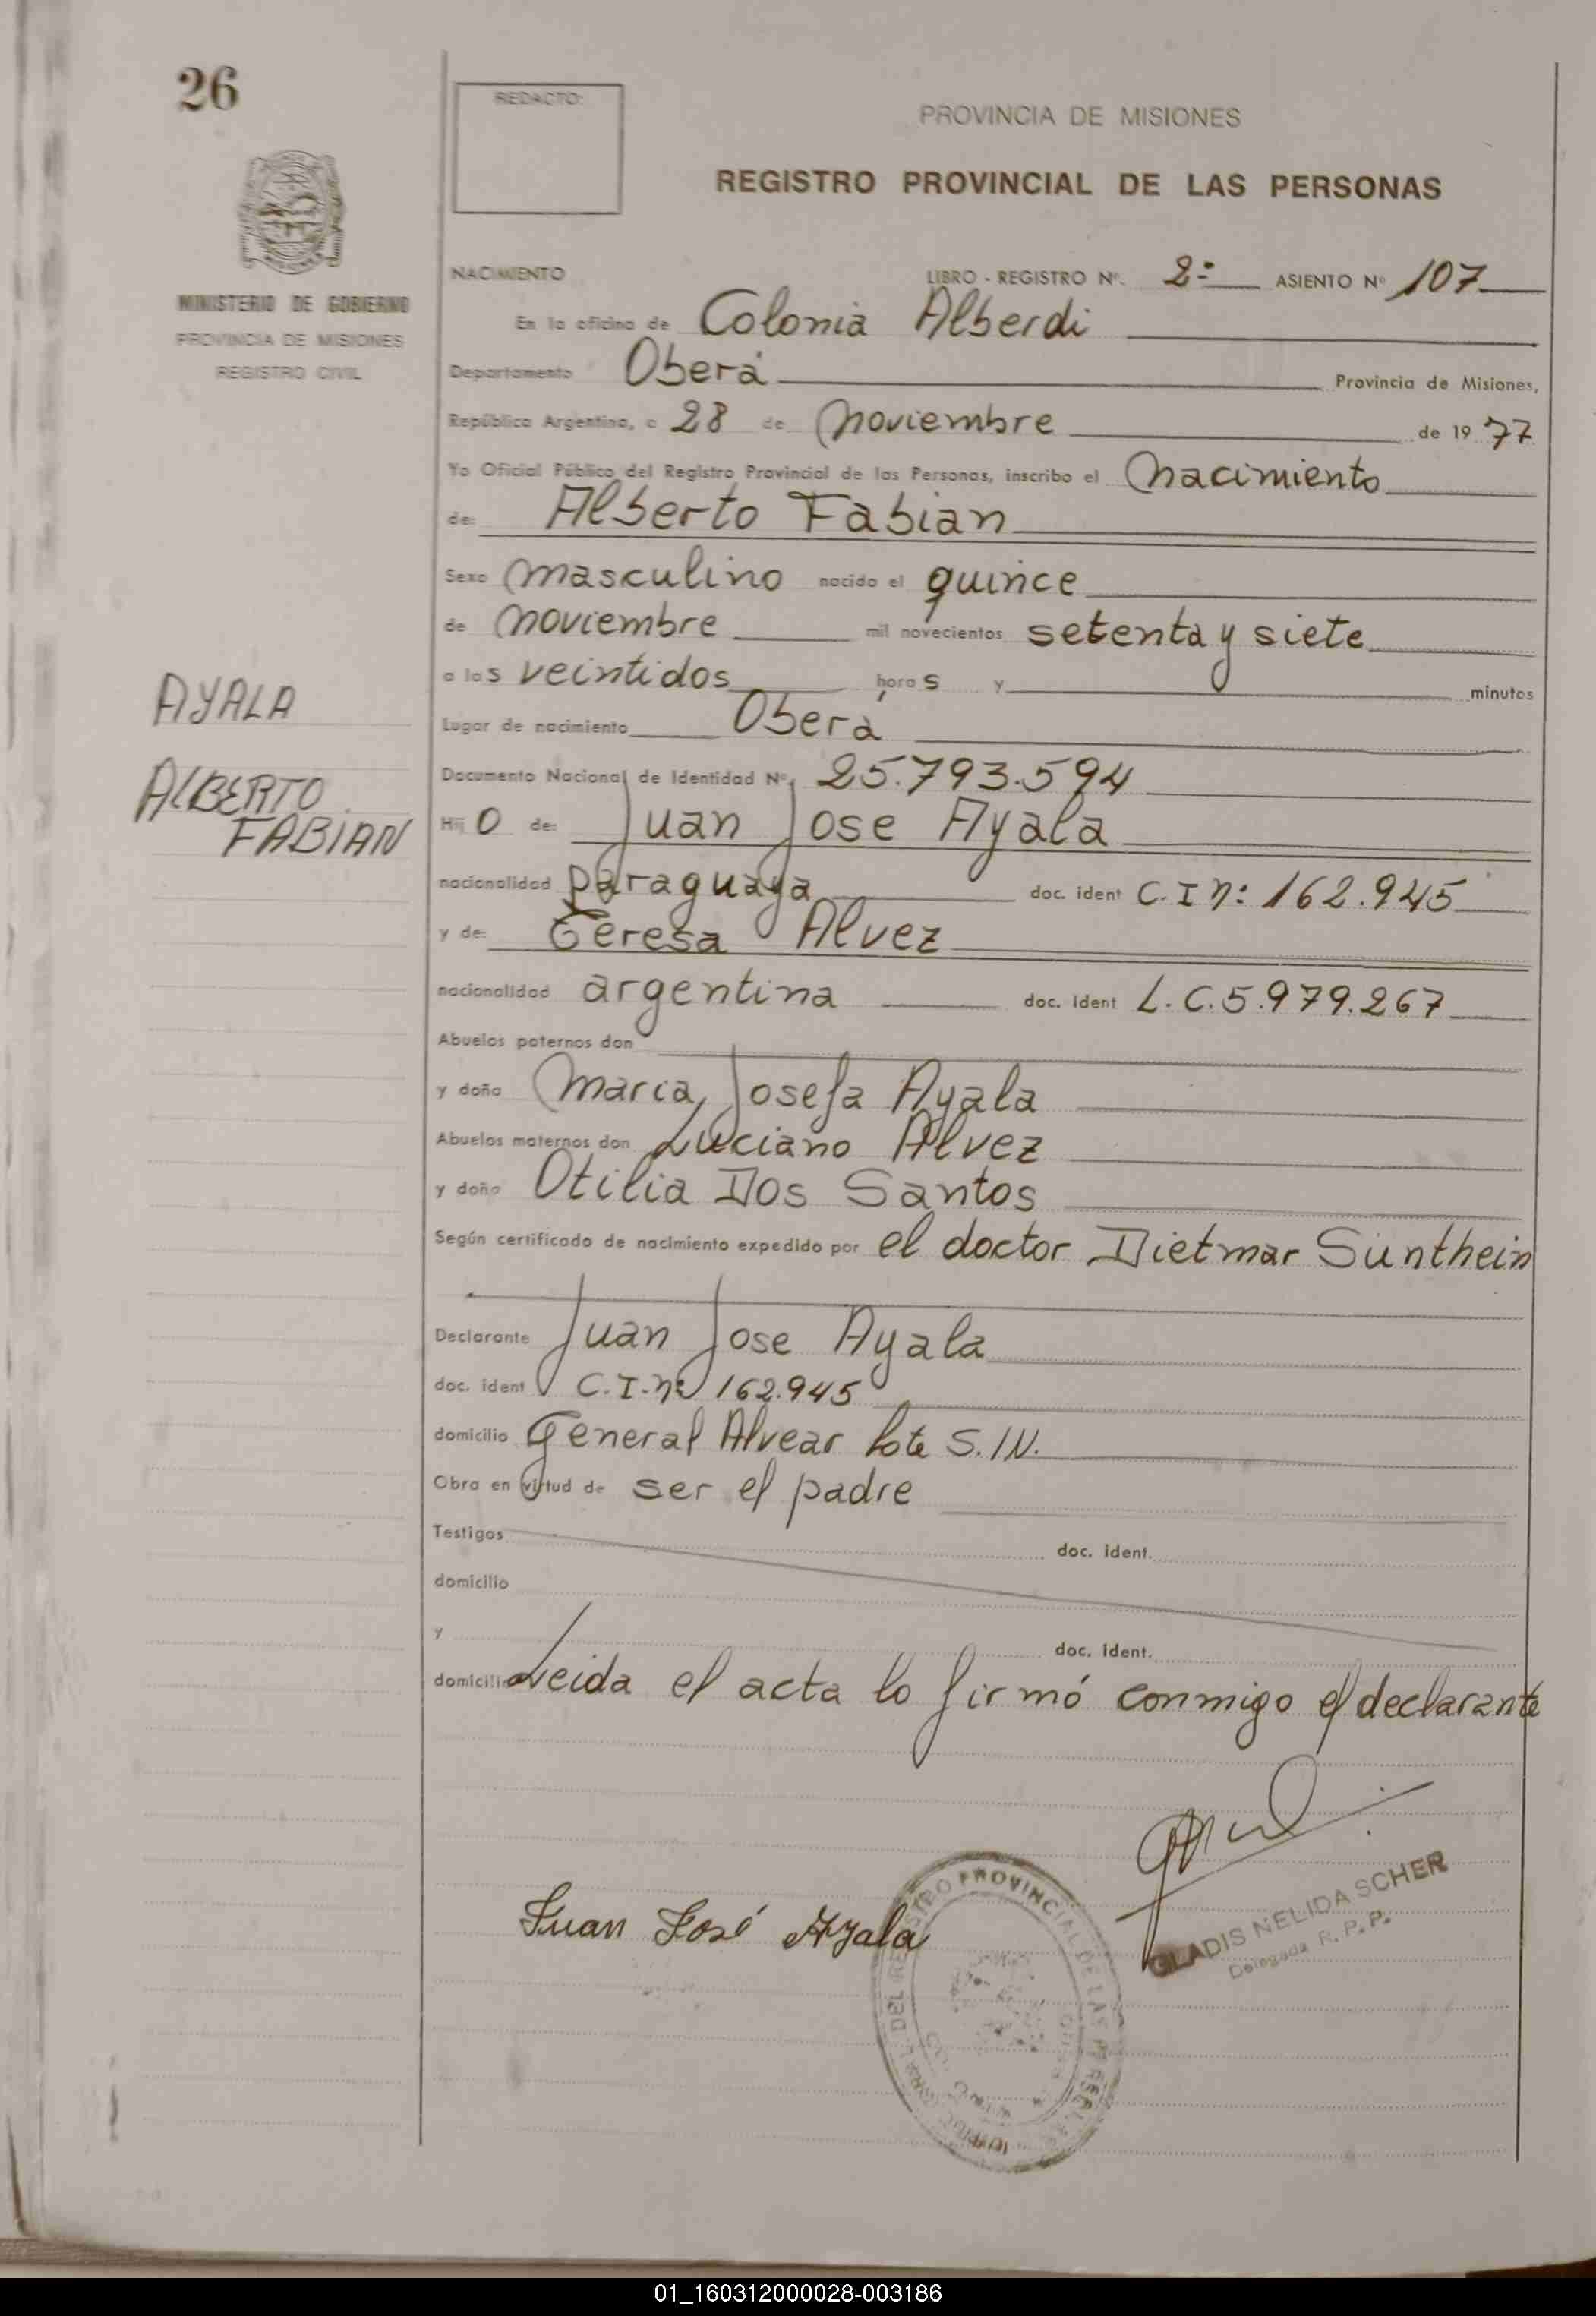 26
REDACTO:
PROVINCIA DE MISIONES
REGISTRO PROVINCIAL DE LAS PERSONAS
MINISTERIO DE GOBIERNO
PROVINCIA DE MISIONES
REGISTRO CIVIL
NACIMIENTO LIBRO - REGISTRO Nº. 2º ASIENTO Nº 107
En la oficina de Colonia Alberdi
Departamento Oberá Provincia de Misiones,
República Argentina, a 28 de noviembre de 1977
Yo Oficial Público del Registro Provincial de las Personas, inscribo el nacimiento
de: Alberto Fabian
Sexo masculino nacido el quince
de noviembre mil novecientos setenta y siete
a las veintidos horas y minutos
AYALA
Lugar de nacimiento Oberá
ALBERTO
FABIAN
Documento Nacional de Identidad Nº 25.793.594
Hijo de: Juan Jose Ayala
nacionalidad paraguaya doc. ident C.I nº: 162.945
y de: Teresa Alvez
nacionalidad argentina doc. ident L.C.5.979.267
Abuelos paternos don
y doña Maria Josefa Ayala
Abuelos maternos don Luciano Alvez
y doña Otilia Dos Santos
Según certificado de nacimiento expedido por el doctor Dietmar Sunthein
Declarante Juan Jose Ayala
doc. ident C.I.nº 162.945
domicilio General Alvear Lote S./N.
Obra en virtud de ser el padre
Testigos doc. ident.
domicilio
y doc. ident.
domicilio Leida el acta lo firmó conmigo el declarante
Juan José Ayala
GLADIS NELIDA SCHER
Delegada R. P. P.
DEL REGISTRO PROVINCIAL DE LAS PERSONAS
01_160312000028-003186